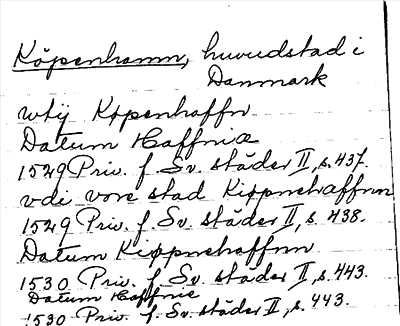 Köpenhamn, huvudstad i
Danmark
wtÿ Køpenhaffn
Datum Haffniæ
1529 Priv. f. Sv. städer II, s. 437.
vdi vor stad Kiøpnehaffnn
1529 Priv. f. Sv. städer II, s. 438.
Datum Kiøpnehaffnn
1530 Priv. f. Sv. städer II, s. 443.
Datum Haffnie
1530 Priv. f. Sv. städer II, s. 443.